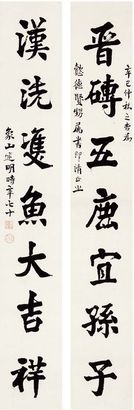 辛巳仲秋之吉為
晉磚五鹿宜孫子
懿德賢甥屬書即請正之
漢洗雙魚大吉祥
象山 明時年七十